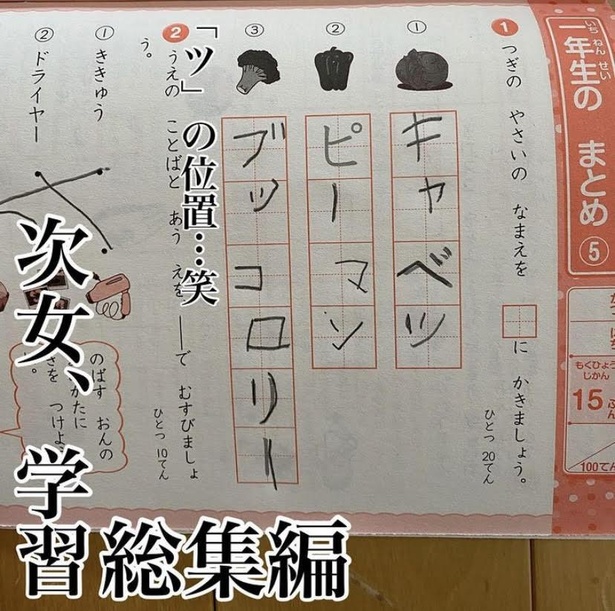 一年生の まとめ ⑤
いち ねん せい
もくひょう
じかん
15ぷん
100てん
1 つぎの やさいの なまえを □に かきましょう。
ひとつ 20てん
① キャベツ
② ピーマン
③ ブッコロリー
2 うえの ことばと あう えを ──で むすびましょ
う。
ひとつ 10てん
① ききゅう
② ドライヤー
のばす おんの
かたに
さを つけよ
。
「ツ」の位置…笑
次女、学習総集編